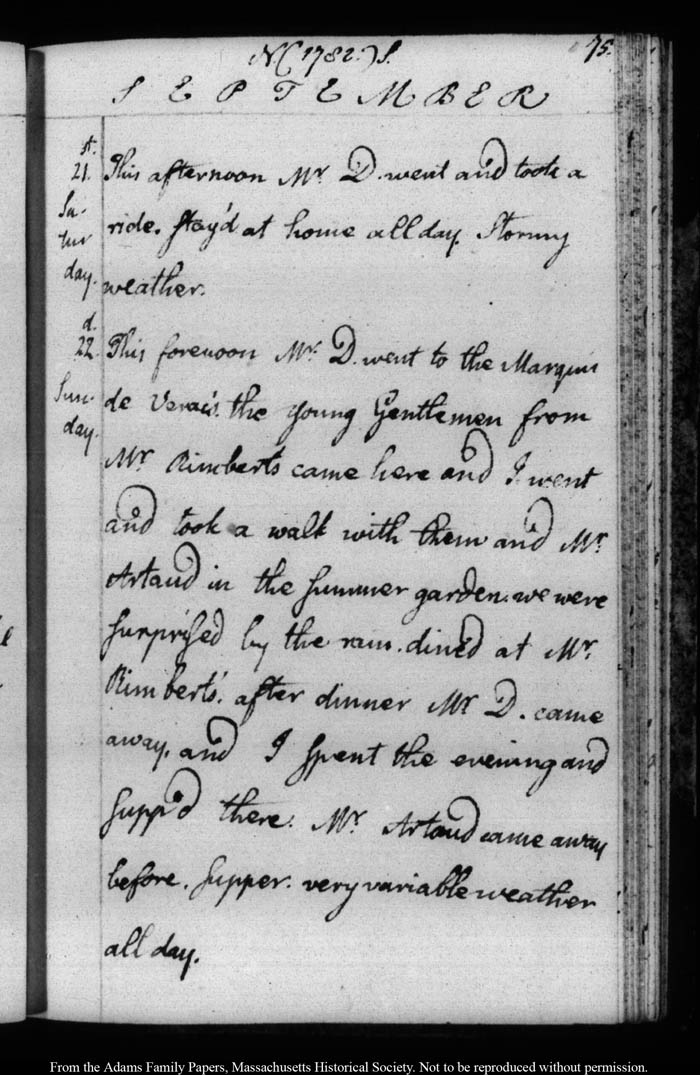 N( 1782.)S. 75.
SEPTEMBER
st.
21.
Sa-
tur
day.
This afternoon Mr. D. went and took a
ride. stay'd at home all day. Stormy
weather.
d.
22.
Sun-
day.
This forenoon Mr. D. went to the Marquis
de Verac's. the young Gentlemen from
Mr. Rimberts came here and I went
and took a walk with them and Mr.
Artaud in the summer garden. we were
surprised by the rain. din'd at Mr.
Rimberts'. after dinner Mr. D. came
away, and I spent the evening and
supp'd there. Mr. Artaud came away
before. supper. very variable weather
all day.
From the Adams Family Papers, Massachusetts Historical Society. Not to be reproduced without permission.